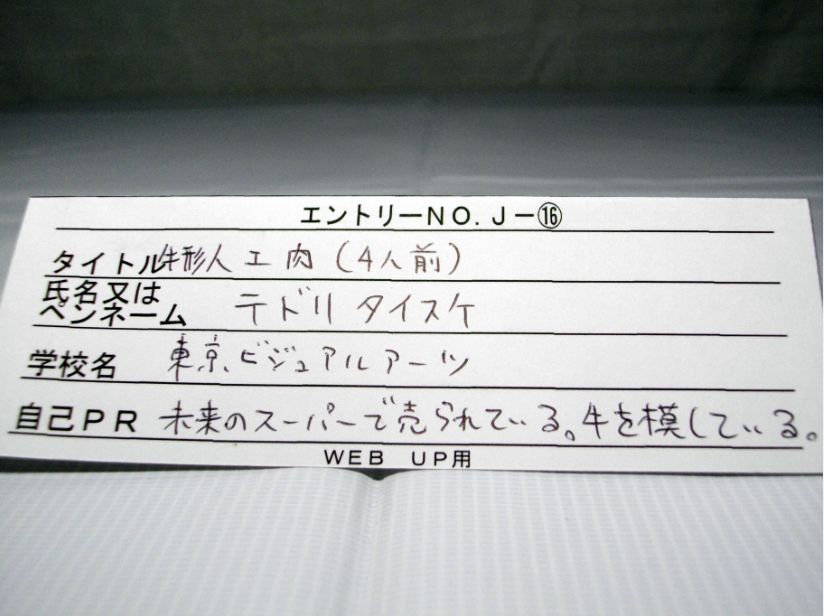 エントリーNO.J－⑯
タイトル 牛形人工肉(4人前)
氏名又は
ペンネーム テドリタイスケ
学校名 東京ビジュアルアーツ
自己PR 未来のスーパーで売られている。牛を模している。
WEB UP用